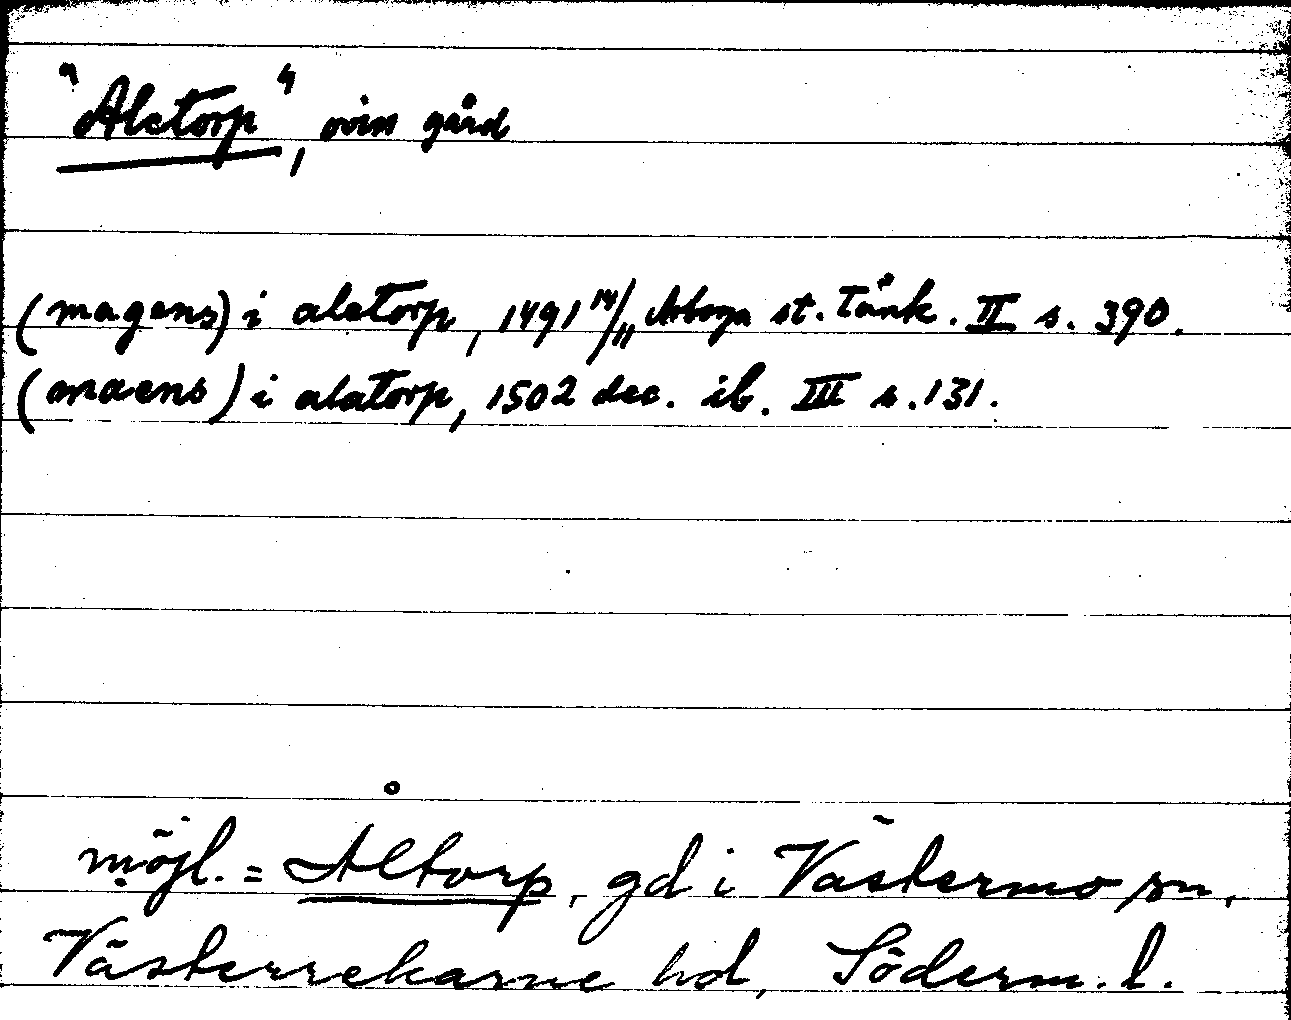 "Aletorp", ovis gård
(magens) i aletorp, 1491 14/11 Arboga st. Tänk. II s. 390.
(maens) i alatorp, 1502 dec. ib. III s. 131.
möjl. = Åltorp, gd i Västermo sn,
Västerrekarne hd, Söderm. l.